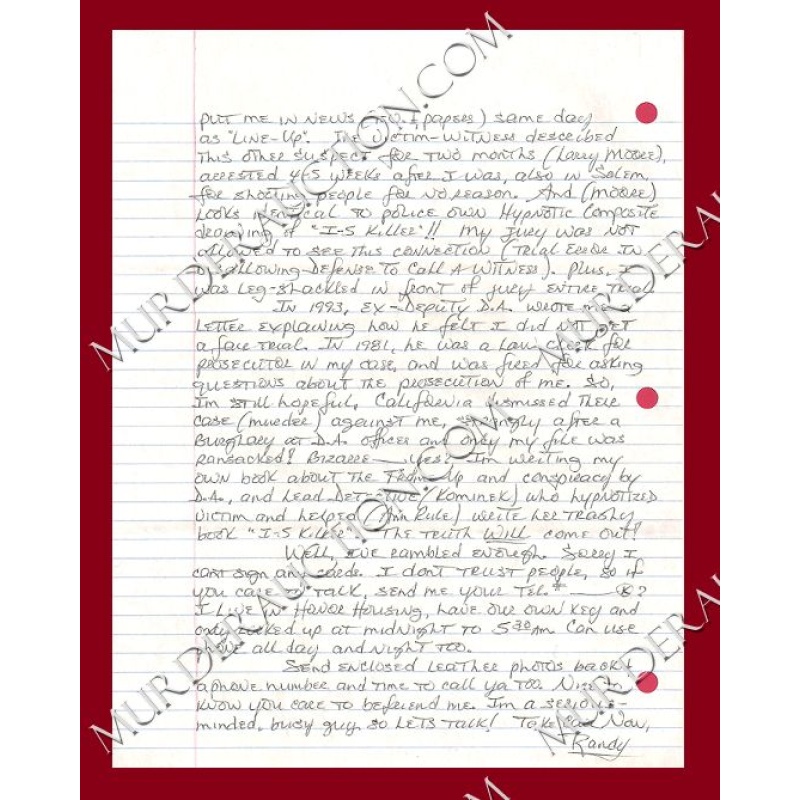 PUT ME IN NEWS (papers) same day
as "LINE-UP". The VICTIM-WITNESS described
THIS OTHER SUSPECT for TWO MONTHS (Larry Moore),
arrested 4-5 weeks after I was, also in Salem,
for shooting people for no reason. And (Moore)
Looks identical to police own Hypnotic Composite
drawing of "I-5 Killer"!! My Jury was NOT
allowed to see this connection (Trial Error in
disallowing Defense to call a witness). Plus, I
was leg-shackled in front of jury entire trial.
In 1993, Ex-Deputy D.A. wrote me a
letter explaining how he felt I did not get
a fair trial. In 1981, he was a law clerk for
prosecutor in my case, and was fired for asking
questions about the prosecution of me. So,
I'm still hopeful. California dismissed their
case (murder) against me, strangly after a
Burglary at D.A. offices and only my file was
ransacked! Bizarre — Yes? I'm writing my
own book about the Fram-Up and conspiracy by
D.A., and Lead Detective (Kominek) who hypnotized
victim and helped (Ann Rule) write her trashy
book "I-5 Killer". The truth WILL come out!
Well, I've rambled enough. Sorry I
cant sign any cards. I dont trust people, so if
you care to talk, send me your Tel.# —?
I live in Honor Housing, have our own key and
only locked up at midnight to 5:30 AM. Can use
phone all day and night too.
Send enclosed leather photos back &
a phone number and time to call ya too. Nice to
know you care to befriend me. I'm a serious-
minded, busy guy. So lets talk! Take Care Now,
Randy
MURDERAUCTION.COM